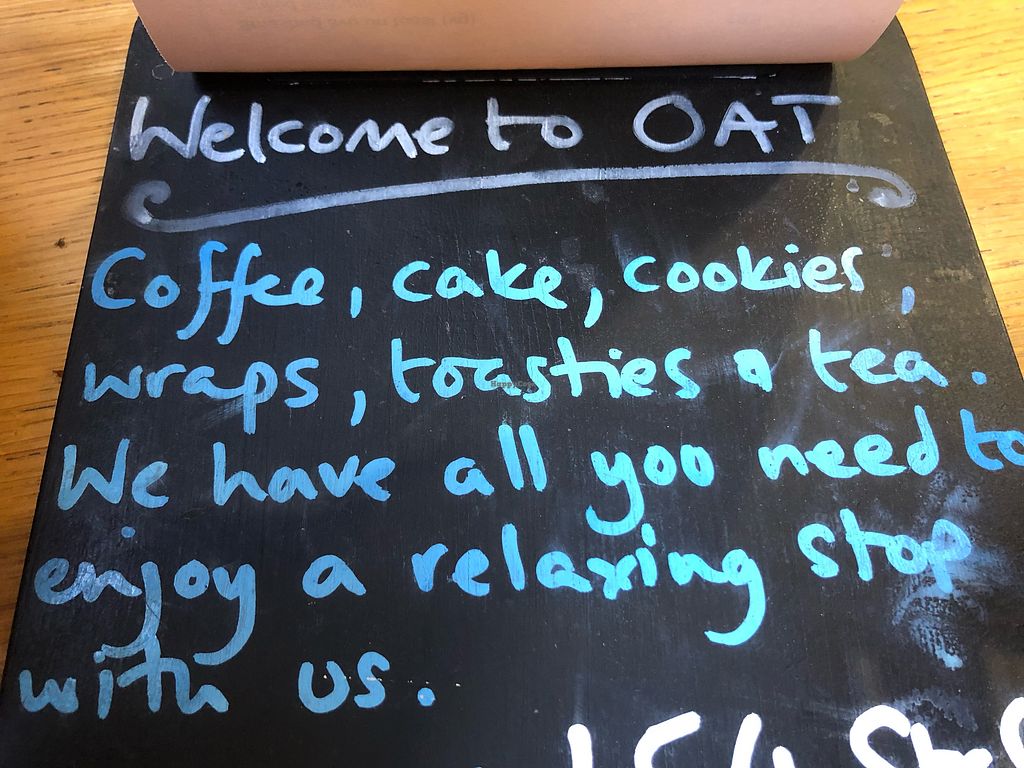 Welcome to OAT
Coffee, cake, cookies,
wraps, toasties & tea.
We have all you need to
enjoy a relaxing stop
with us.